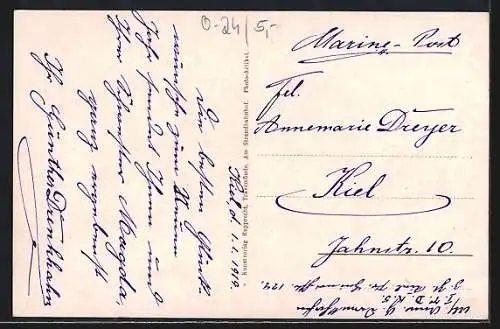 0-24/5,-
Marine-Post
Frl.
Annemarie Dreyer
Kiel
Jahnstr. 10.
Kiel, d. 1.1.1919.
Die besten Glück-
wünsche zum Neuen
Jahr sendet Ihnen und
Ihrer Schwester Magda
ganz ergebenst
Ihr Günther Drenkhahn
Kunstverlag Rupprecht, Travemünde, Am Strandbahnhof. Photo-Artikel.